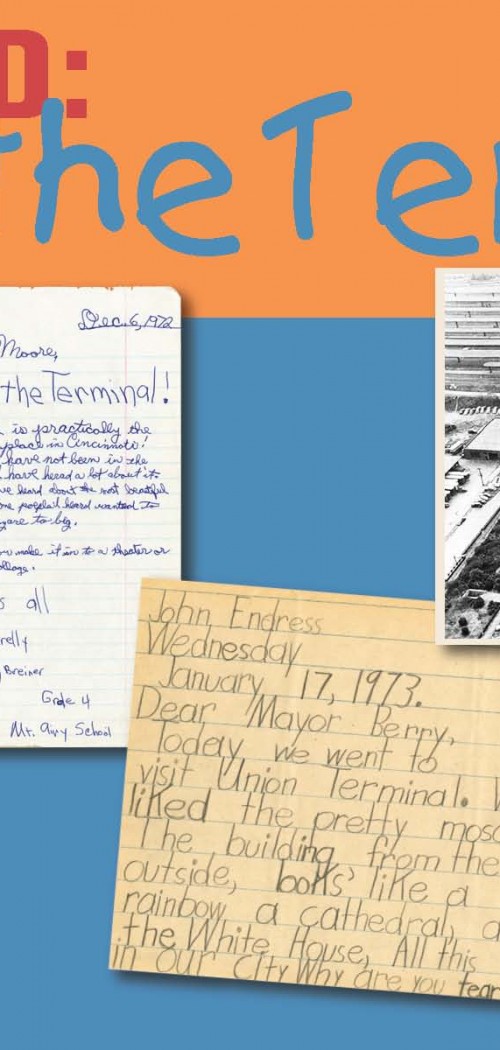 D:
the Ter
Dec. 6, 1972
Moore,
the Terminal!
is practically the
place in Cincinnati!
have not been in the
have heard a lot about it.
ve heard about the most beautiful
one people heard wanted to
are to big.
make it in to a theater or
ollage.
s all
relly
Breiner
Grade 4
Mt. Airy School
John Endress
Wednesday
January 17, 1973.
Dear Mayor Berry,
Today we went to
visit Union Terminal. W
liked the pretty mosa
The building from the
outside, bolls' like a
rainbow, a cathedral, a
the White House, All this
in our City Why are you tear